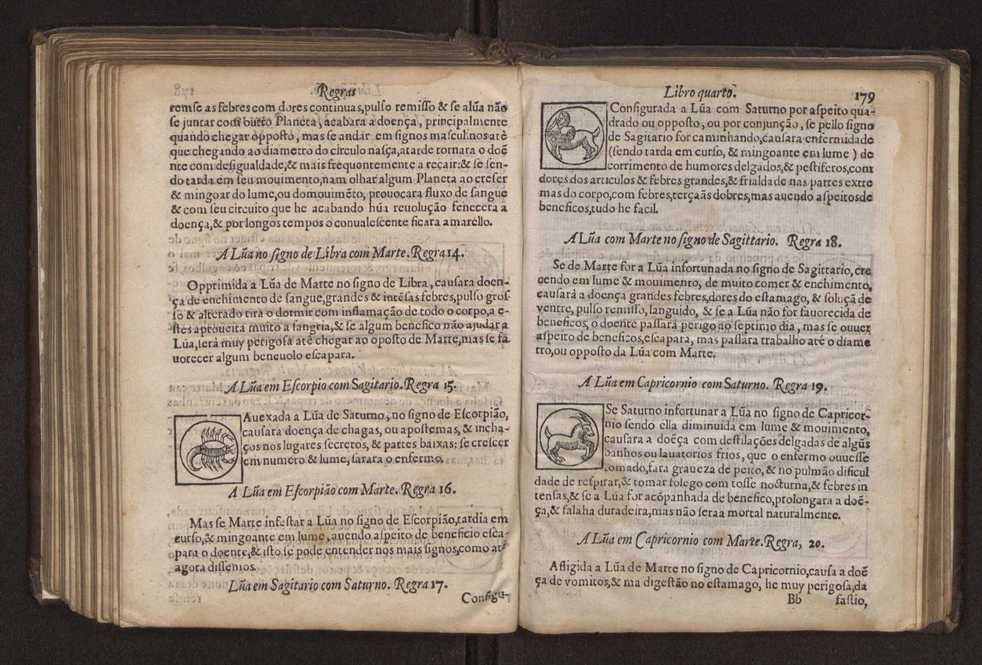 Regras
remse as febres com dores continuas, pulso remisso & se alũa não
se juntar com outro Planeta, acabara a doença, principalmente
quando chegar opposto, mas se andar em signos mascul. nos atè
que chegando ao diametro do circulo nasça, atarde tornara o doẽ
nte com desigualdade, & mais frequentemente a recair: & se sen-
do tarda em seu mouimento, nam olhar algum Planeta ao creser
& mingoar do lume, ou do mouimẽto, prouocara fluxo de sangue
& com seu circuito que he acabando hũa reuolução fenecera a
doença, & por longos tempos o conualescente ficara amarello.
A Lũa no signo de Libra com Marte. Regra 14.
Opprimida a Lũa de Marte no signo de Libra, causara doen-
ça de enchimento de sangue, grandes & intẽsas febres, pulso gros-
so & alterado tira o dormir com inflamação de todo o corpo, a e-
stes aproueita muito a sangria, & se algum benefico não ajudar a
Lũa, será muy perigosa atè chegar ao oposto de Marte, mas se fa
uorecer algum beneuolo escapara.
A Lũa em Escorpio com Sagitario. Regra 15.
Auexada a Lũa de Saturno, no signo de Escorpião,
causara doença de chagas, ou apostemas, & incha-
ços nos lugares secretos, & partes baixas: se crescer
em numero & lume, sarara o enfermo.
A Lũa em Escorpião com Marte. Regra 16.
Mas se Marte infestar a Lũa no signo de Escorpião, tardia em
curso, & mingoante em lume, auendo aspeito de beneficio esca-
para o doente, & isto se pode entender nos mais signos, como atè
agora dissemos.
Lũa em Sagitario com Saturno. Regra 17.
Configu-
Libro quarto.
179
Configurada a Lũa com Saturno por aspeito qua-
drado ou opposto, ou por conjunção, se pello signo
de Sagitario for caminhando, causara enfermidade
(sendo tarda em curso, & mingoante em lume) de
corrimento de humores delgados, & pestiferos, com
dores dos articulos & febres grandes, & frialda de nas partes extre
mas do corpo, com febres, terçaãs dobres, mas auendo aspeitos de
beneficos, tudo he facil.
A Lũa com Marte no signo de Sagittario. Regra 18.
Se de Marte for a Lũa infortunada no signo de Sagittario, cre
cendo em lume & mouimento, de muito comer & enchimento,
causará a doença grandes febres, dores do estamago, & soluçã de
ventre, pulso remisso, languido, & se a Lũa não for fauorecida de
beneficos, o doente passará perigo no septimo dia, mas se ouuer
aspeito de beneficos, escapara, mas passara trabalho atè o diame
tro, ou opposto da Lũa com Marte.
A Lũa em Capricornio com Saturno. Regra 19.
Se Saturno infortunar a Lũa no signo de Capricor-
nio sendo ella diminuida em lume & mouimento,
causara a doẽça com destilações delgadas de algũs
banhos ou lauatorios frios, que o enfermo ouuesse
tomado, fara graueza de peito, & no pulmão dificul
dade de respirar, & tomar folego com tosse nocturna, & febres in
tensas, & se a Lũa for acõpanhada de benefico, prolongara a doẽ-
ça, & falaha duradeira, mas não sera a mortal naturalmente.
A Lũa em Capricornio com Marte. Regra, 20.
Affligida a Lũa de Marte no signo de Capricornio, causa a doẽ
ça de vomitos, & ma digestão no estamago, he muy perigosa, da
Bb fastio,